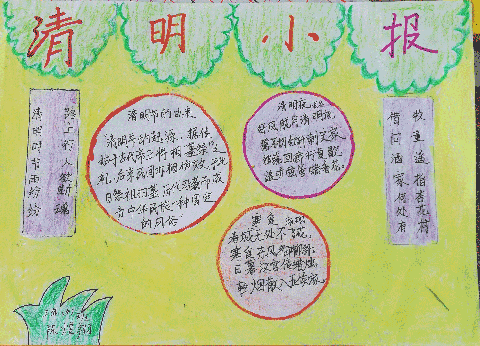 清明小报
清明时节雨纷纷
路上行人欲断魂
借问酒家何处有
牧童遥指杏花
清明节的由来
清明节的起源，据传
始于古代帝王将相“墓祭”之
礼，后来民间亦相仿效，于此
日祭祖扫墓，历代沿袭而成
为中华民族一种固定
的风俗
清明夜
好风胧月清明夜，
碧砌红轩刺史家。
独绕回廊行复歇，
遥听弦管暗看花。
寒食
春城无处不飞花，
寒食东风御柳斜。
日暮汉宫传蜡烛，
轻烟散入五侯家。